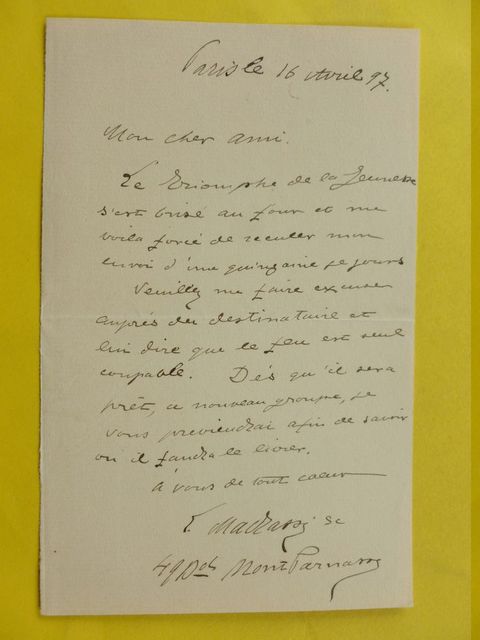 Paris le 16 Avril 97.
Mon cher ami.
Le Triomphe de la Jeunesse
s'est brisé au four et me
voila forcé de reculer mon
envoi d'une quinzaine de jours
Veuillez me faire excuser
auprés du destinataire et
lui dire que le feu est seul
coupable. Dés qu'il sera
prêt, ce nouveau groupe, je
vous previendrai afin de savoir
ou il faudra le livrer.
à vous de tout coeur
L Madrassi sc
49 Bd Montparnasse